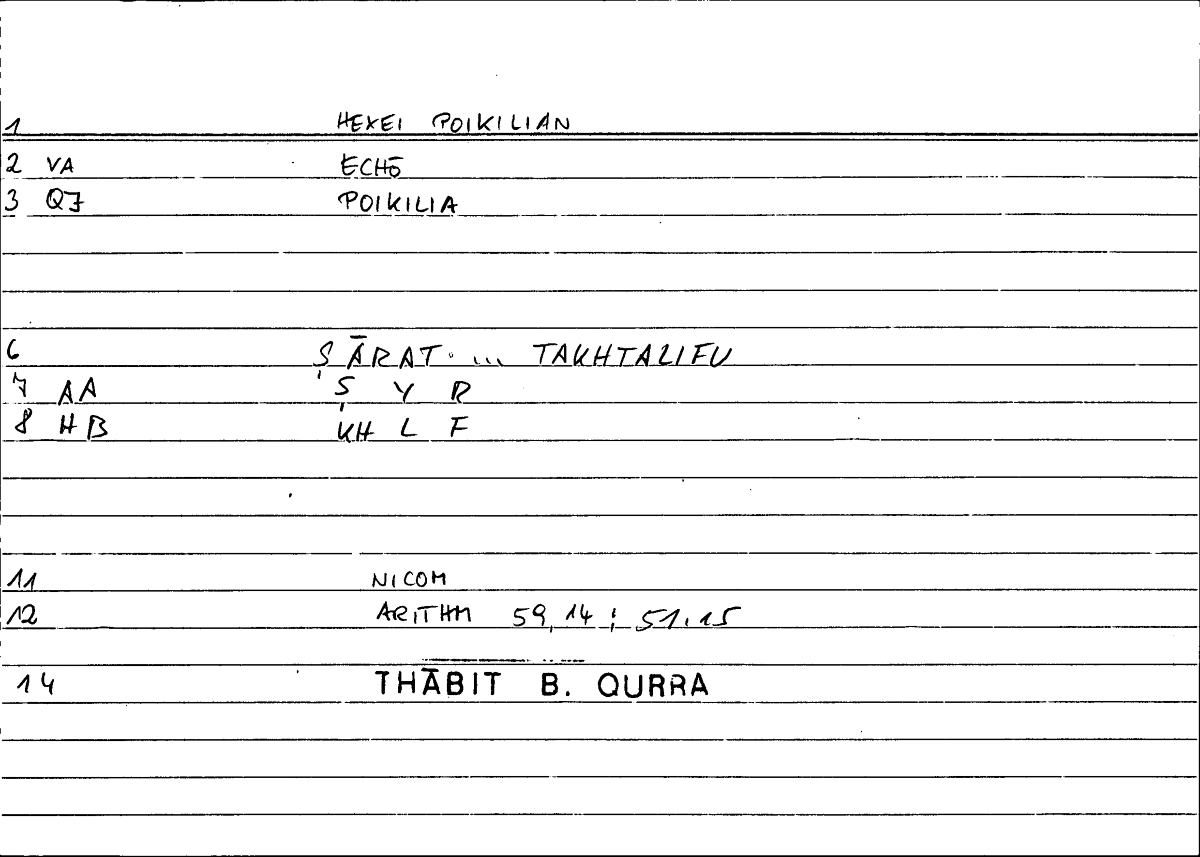 1 HEXEI POIKILIAN
2 VA ECHŌ
3 QJ POIKILIA
6 ṢĀRAT ... TAKHTALIFU
7 AA Ṣ Y R
8 HB KH L F
11 NICOM
12 ARITHM 59,14 ; 51.15
14 THĀBIT B. QURRA